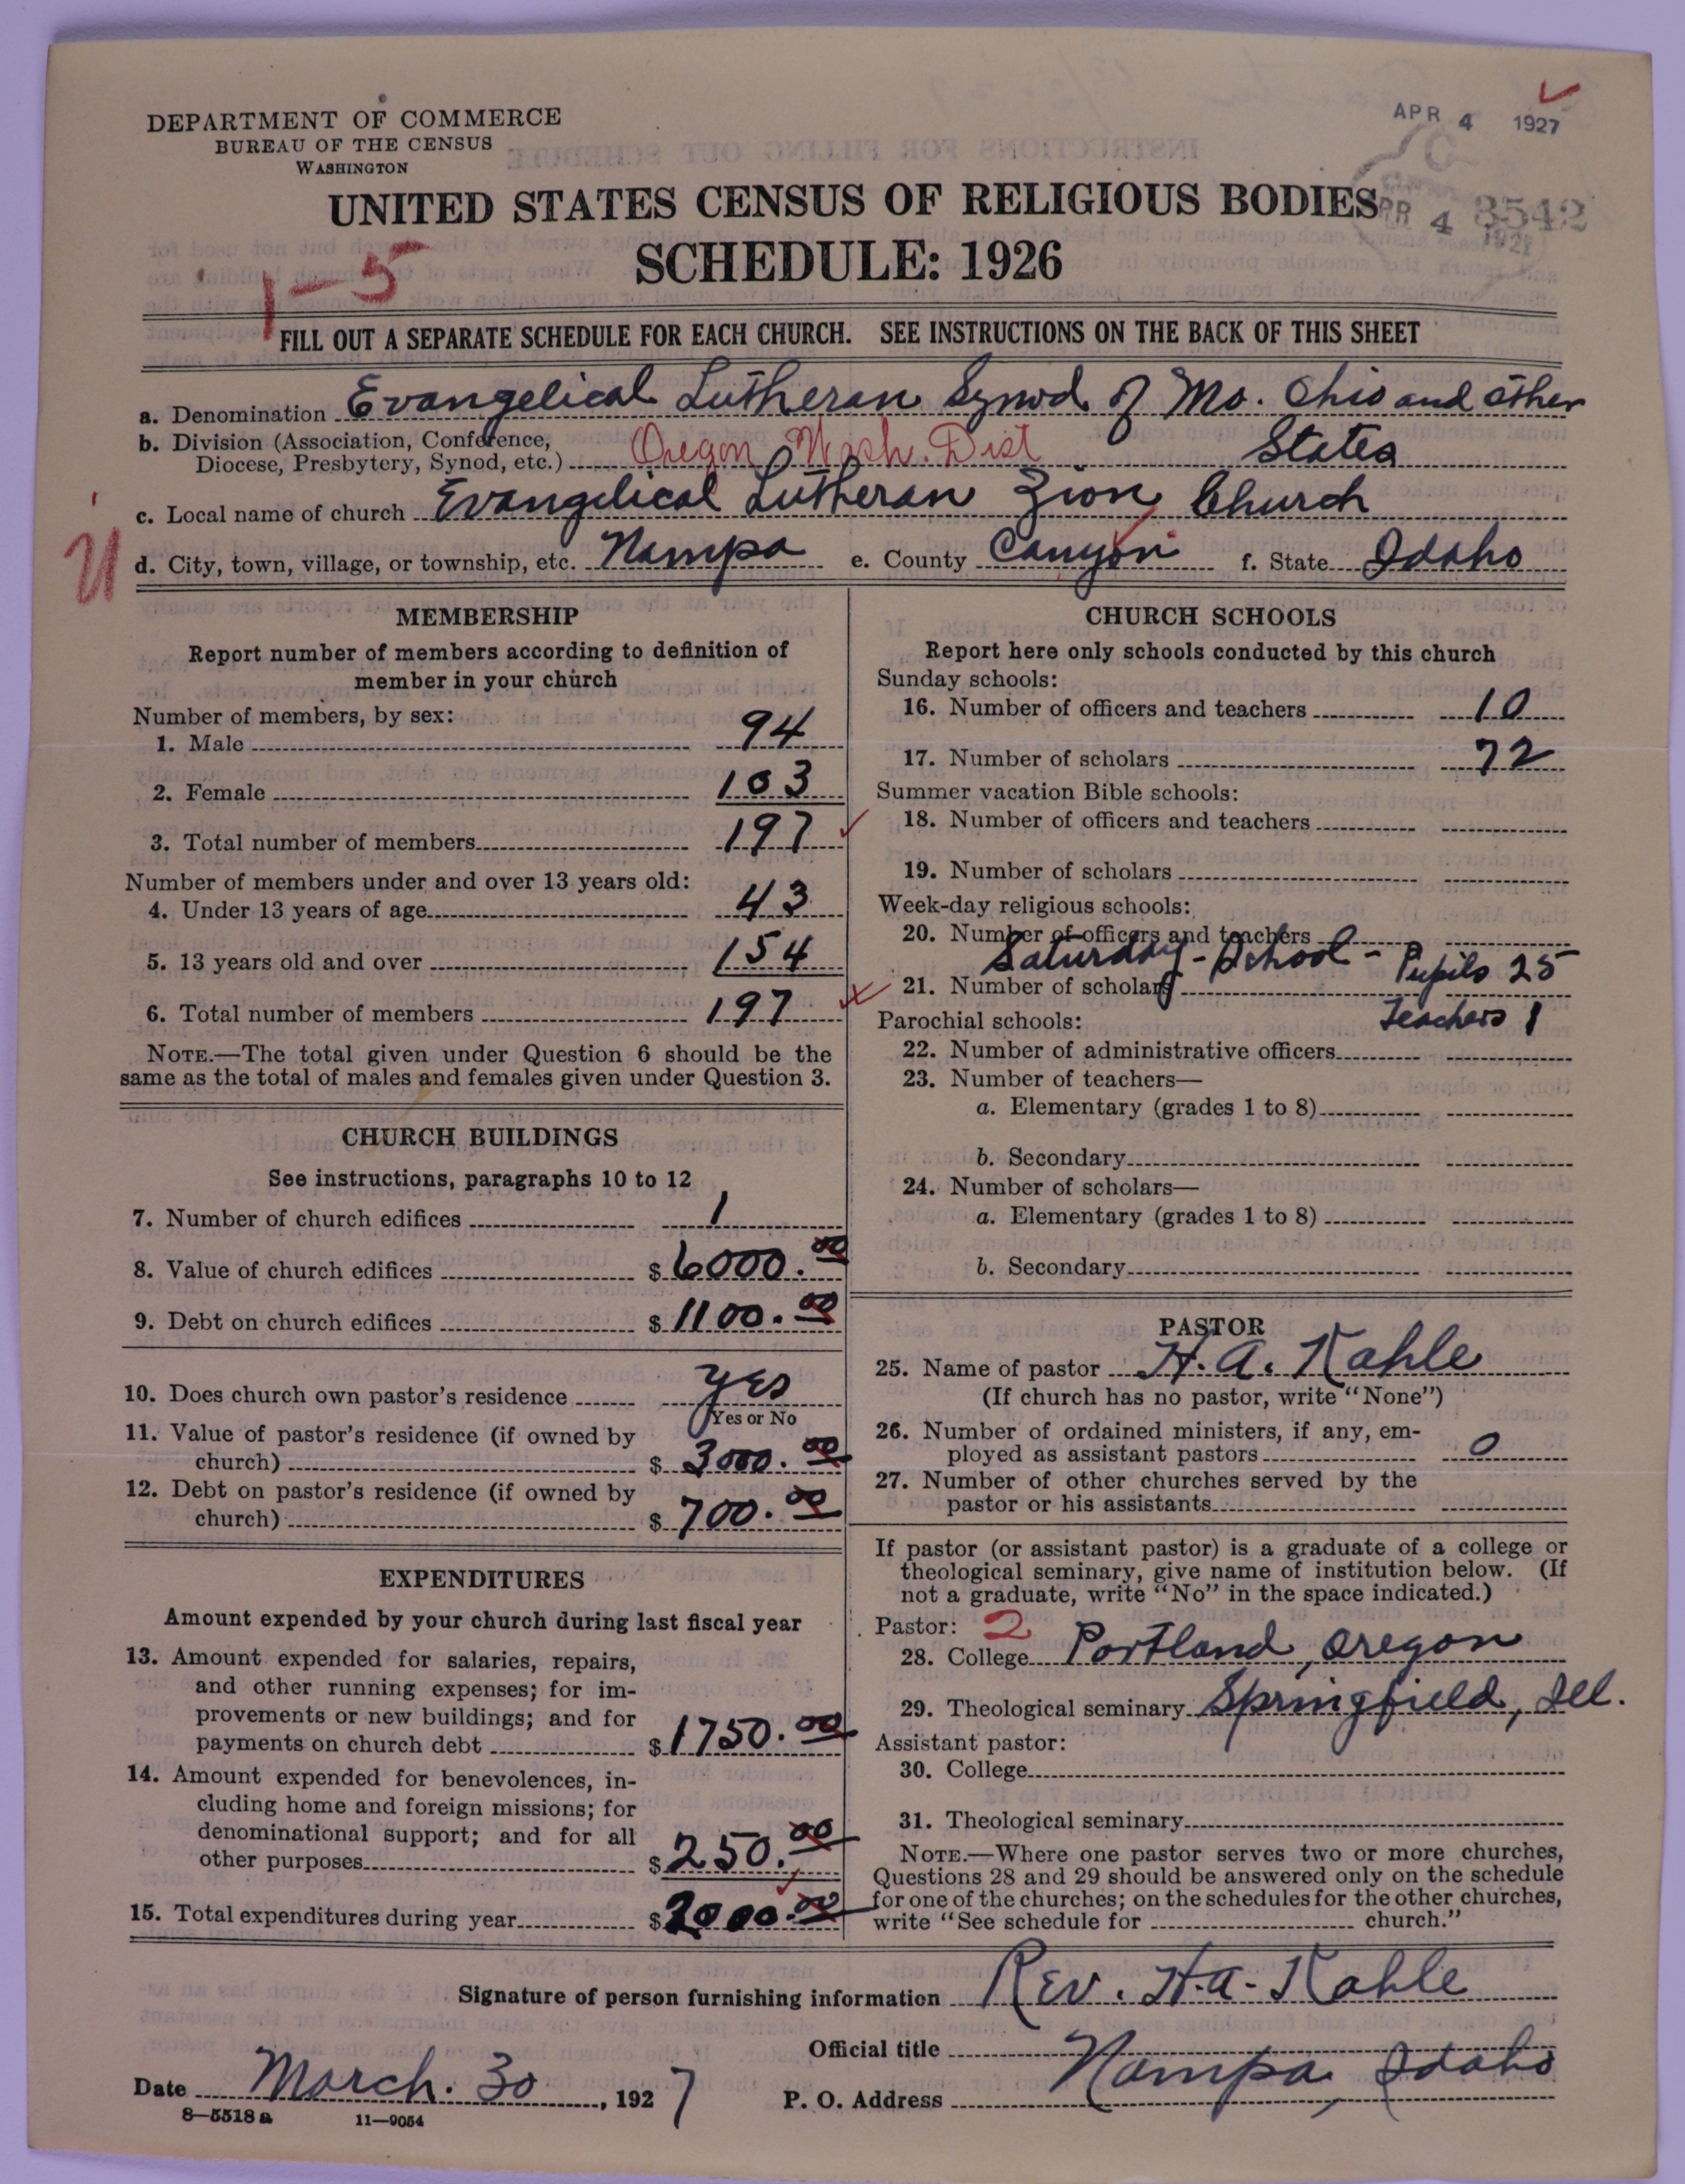 DEPARTMENT OF COMMERCE
BUREAU OF THE CENSUS
WASHINGTON
APR 4 1927
UNITED STATES CENSUS OF RELIGIOUS BODIES
APR 4 1927
8542
SCHEDULE: 1926
1-5
FILL OUT A SEPARATE SCHEDULE FOR EACH CHURCH. SEE INSTRUCTIONS ON THE BACK OF THIS SHEET
a. Denomination Evangelical Lutheran Synod of Mo. Ohio and other
b. Division (Association, Conference,
Diocese, Presbytery, Synod, etc.) Oregon Wash. Dist States
c. Local name of church Evangelical Lutheran Zion Church
d. City, town, village, or township, etc. Nampa e. County Canyon f. State Idaho
MEMBERSHIP
Report number of members according to definition of
member in your church
Number of members, by sex:
1. Male 94
2. Female 103
3. Total number of members 197
Number of members under and over 13 years old:
4. Under 13 years of age 43
5. 13 years old and over 154
6. Total number of members 197
NOTE.—The total given under Question 6 should be the
same as the total of males and females given under Question 3.
CHURCH BUILDINGS
See instructions, paragraphs 10 to 12
7. Number of church edifices 1
8. Value of church edifices $ 6000.00
9. Debt on church edifices $ 1100.00
10. Does church own pastor's residence yes
Yes or No
11. Value of pastor's residence (if owned by
church) $ 3000.00
12. Debt on pastor's residence (if owned by
church) $ 700.00
EXPENDITURES
Amount expended by your church during last fiscal year
13. Amount expended for salaries, repairs,
and other running expenses; for im-
provements or new buildings; and for
payments on church debt $ 1750.00
14. Amount expended for benevolences, in-
cluding home and foreign missions; for
denominational support; and for all
other purposes $ 250.00
15. Total expenditures during year $ 2000.00
CHURCH SCHOOLS
Report here only schools conducted by this church
Sunday schools:
16. Number of officers and teachers 10
17. Number of scholars 72
Summer vacation Bible schools:
18. Number of officers and teachers
19. Number of scholars
Week-day religious schools:
20. Number of officers and teachers
Saturday-School - Pupils 25
21. Number of scholars
Teachers 1
Parochial schools:
22. Number of administrative officers
23. Number of teachers—
a. Elementary (grades 1 to 8)
b. Secondary
24. Number of scholars—
a. Elementary (grades 1 to 8)
b. Secondary
PASTOR
25. Name of pastor H. A. Kahle
(If church has no pastor, write "None")
26. Number of ordained ministers, if any, em-
ployed as assistant pastors 0
27. Number of other churches served by the
pastor or his assistants
If pastor (or assistant pastor) is a graduate of a college or
theological seminary, give name of institution below. (If
not a graduate, write "No" in the space indicated.)
Pastor: 2
28. College Portland, Oregon
29. Theological seminary Springfield, Ill.
Assistant pastor:
30. College
31. Theological seminary
NOTE.—Where one pastor serves two or more churches,
Questions 28 and 29 should be answered only on the schedule
for one of the churches; on the schedules for the other churches,
write "See schedule for church."
Signature of person furnishing information Rev. H.A. Kahle
Official title
Date March. 30, 1927 P. O. Address Nampa, Idaho
8—5518 a 11—9054